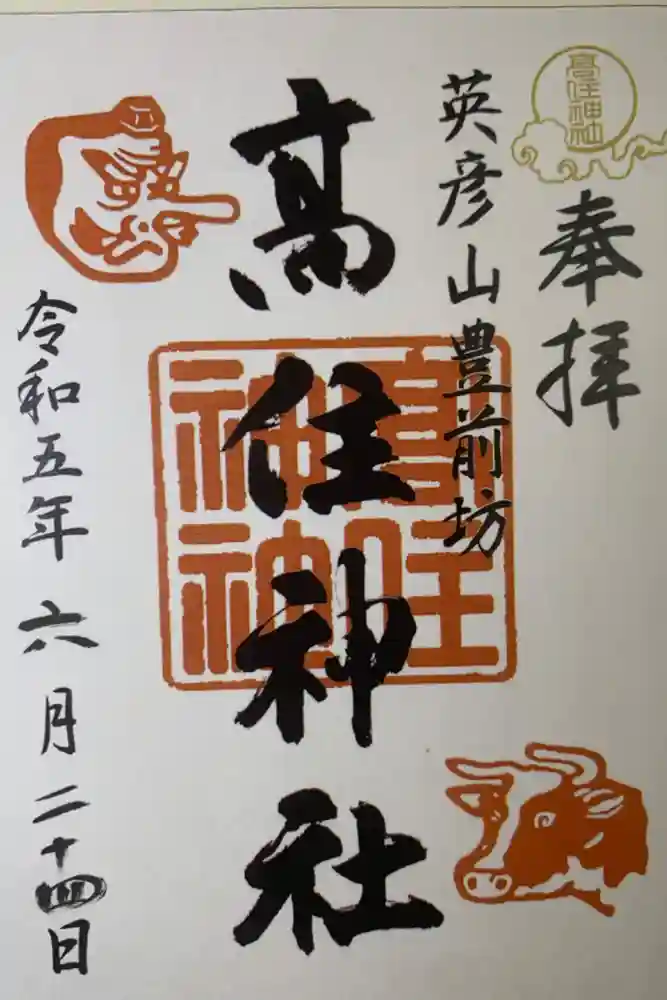 高住神社
奉拝
英彦山豊前坊
高住神社
令和五年六月二十四日